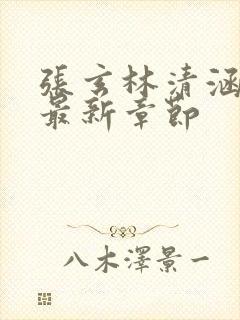 張玄林清涵
最新章節
八木澤景一